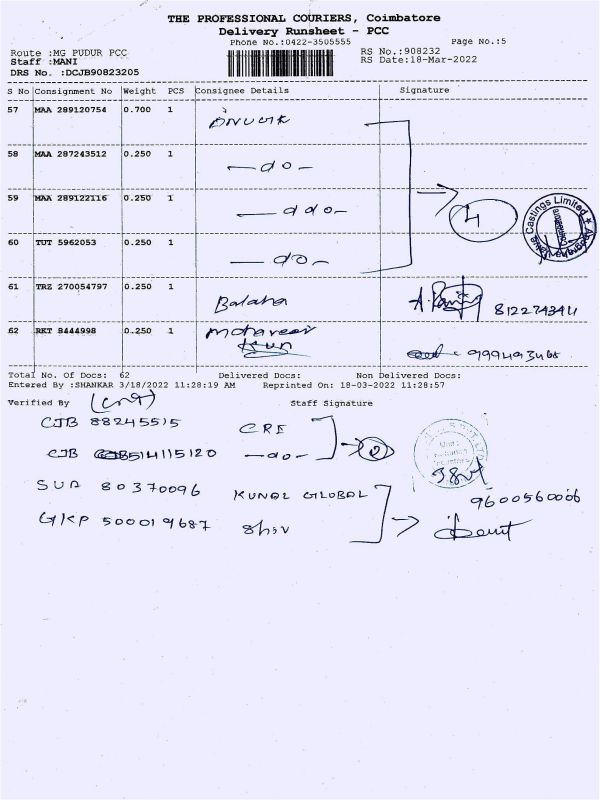 THE PROFESSIONAL COURIERS, Coimbatore
Delivery Runsheet - PCC
Phone No.:0422-3505555 Page No.:5
Route :MG PUDUR PCC RS No.:908232
Staff :MANI RS Date:18-Mar-2022
DRS No. :DCJB90823205
S No Consignment No Weight PCS Consignee Details Signature
57 MAA 289120754 0.700 1
58 MAA 287243512 0.250 1 -do-
59 MAA 289122116 0.250 1 -ddo-
4
Castings Limited
60 TUT 5962053 0.250 1 -do-
61 TRZ 270054797 0.250 1 Balaha 8122743411
62 RKT 8444998 0.250 1 mahaveer
Total No. Of Docs: 62 Delivered Docs: Non Delivered Docs:
Entered By :SHANKAR 3/18/2022 11:28:19 AM Reprinted On: 18-03-2022 11:28:57
Verified By Staff Signature
CJB 88245515 CRI
CJB 514115120 -do-
SUR 80370096 KUNAL GLOBAL 9600560006
GKP 500019687 Shiv